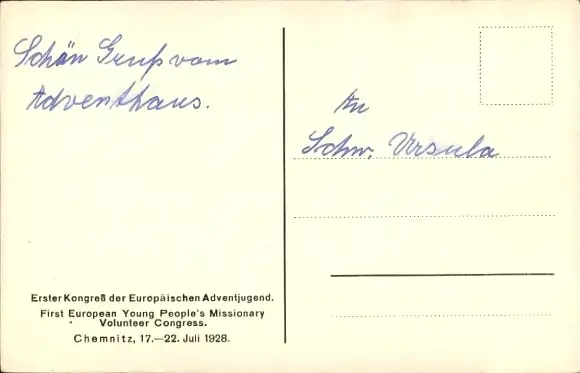 Schön Gruß vom
Adventhaus.
An
Schw. Ursula
Erster Kongreß der Europäischen Adventjugend.
First European Young People's Missionary
Volunteer Congress.
Chemnitz, 17.—22. Juli 1928.